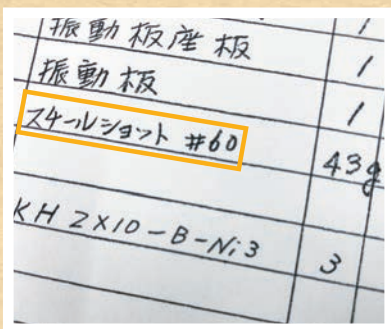 振動板座板 1
振動板 1
スケールショット #60 43g
KH 2×10-B-Ni3 3